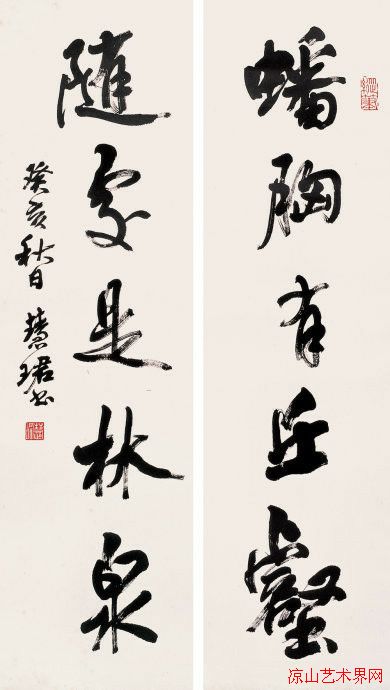 蟠胸有丘壑
随处是林泉
癸亥秋日
慧珺书
凉山艺术界网